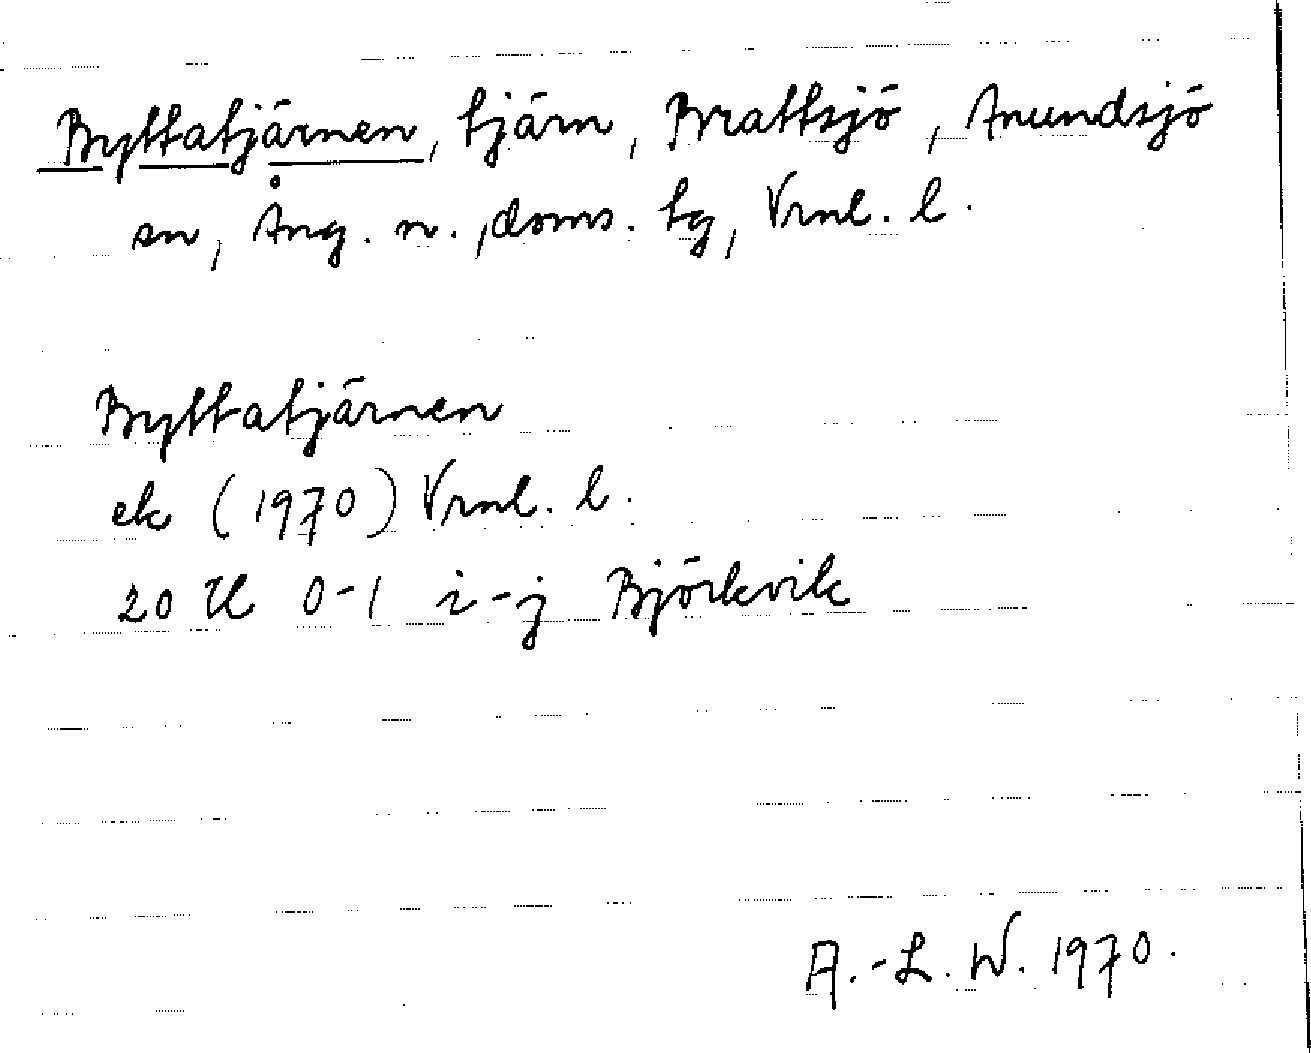 Byttatjärnen, tjärn, Brattsjö, Anundsjö
sn, Ång. n., doms. tg, Vrnl. l.
Byttatjärnen
ek (1970) Vrnl. l.
20 K 0-1 i-j Björkvik
A.-L. W. 1970.